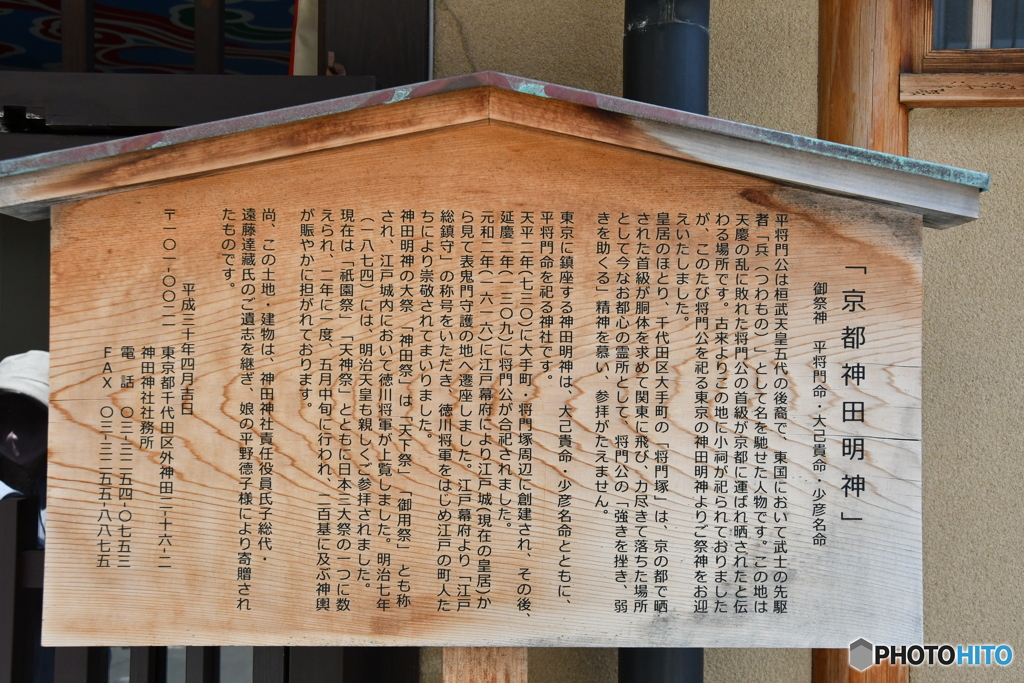 「京都神田明神」
御祭神　平将門命・大己貴命・少彦名命
平将門公は桓武天皇五代の後裔で、東国において武士の先駆
者「兵（つわもの）」として名を馳せた人物です。この地は
天慶の乱に敗れた将門公の首級が京都に運ばれ晒されたと伝
わる場所です。古来よりこの地に小祠が祀られておりました
が、このたび将門公を祀る東京の神田明神よりご祭神をお迎
えいたしました。
皇居のほとり、千代田区大手町の「将門塚」は、京の都で晒
された首級が胴体を求めて関東に飛び、力尽きて落ちた場所
として今なお都心の霊所として、将門公の「強きを挫き、弱
きを助くる」精神を慕い、参拝がたえません。
東京に鎮座する神田明神は、大己貴命・少彦名命とともに、
平将門命を祀る神社です。
天平二年(七三〇)に大手町・将門塚周辺に創建され、その後、
延慶二年(一三〇九)に将門公が合祀されました。
元和二年(一六一六)に江戸幕府により江戸城(現在の皇居)か
ら見て表鬼門守護の地へ遷座しました。江戸幕府より「江戸
総鎮守」の称号をいただき、徳川将軍をはじめ江戸の町人た
ちにより崇敬されてまいりました。
神田明神の大祭「神田祭」は「天下祭」「御用祭」とも称
され、江戸城内において徳川将軍が上覧しました。明治七年
（一八七四）には、明治天皇も親しくご参拝されました。
現在は「祇園祭」「天神祭」とともに日本三大祭の一つに数
えられ、二年に一度、五月中旬に行われ、二百基に及ぶ神輿
が賑やかに担がれております。
尚、この土地・建物は、神田神社責任役員氏子総代・
遠藤達藏氏のご遺志を継ぎ、娘の平野徳子様により寄贈され
たものです。
平成三十年四月吉日
〒一〇一-〇〇二一　東京都千代田区外神田二-十六-二
神田神社社務所
電　話　〇三-三二五四-〇七五三
ＦＡＸ　〇三-三二五五-八八七五
PHOTOHITO